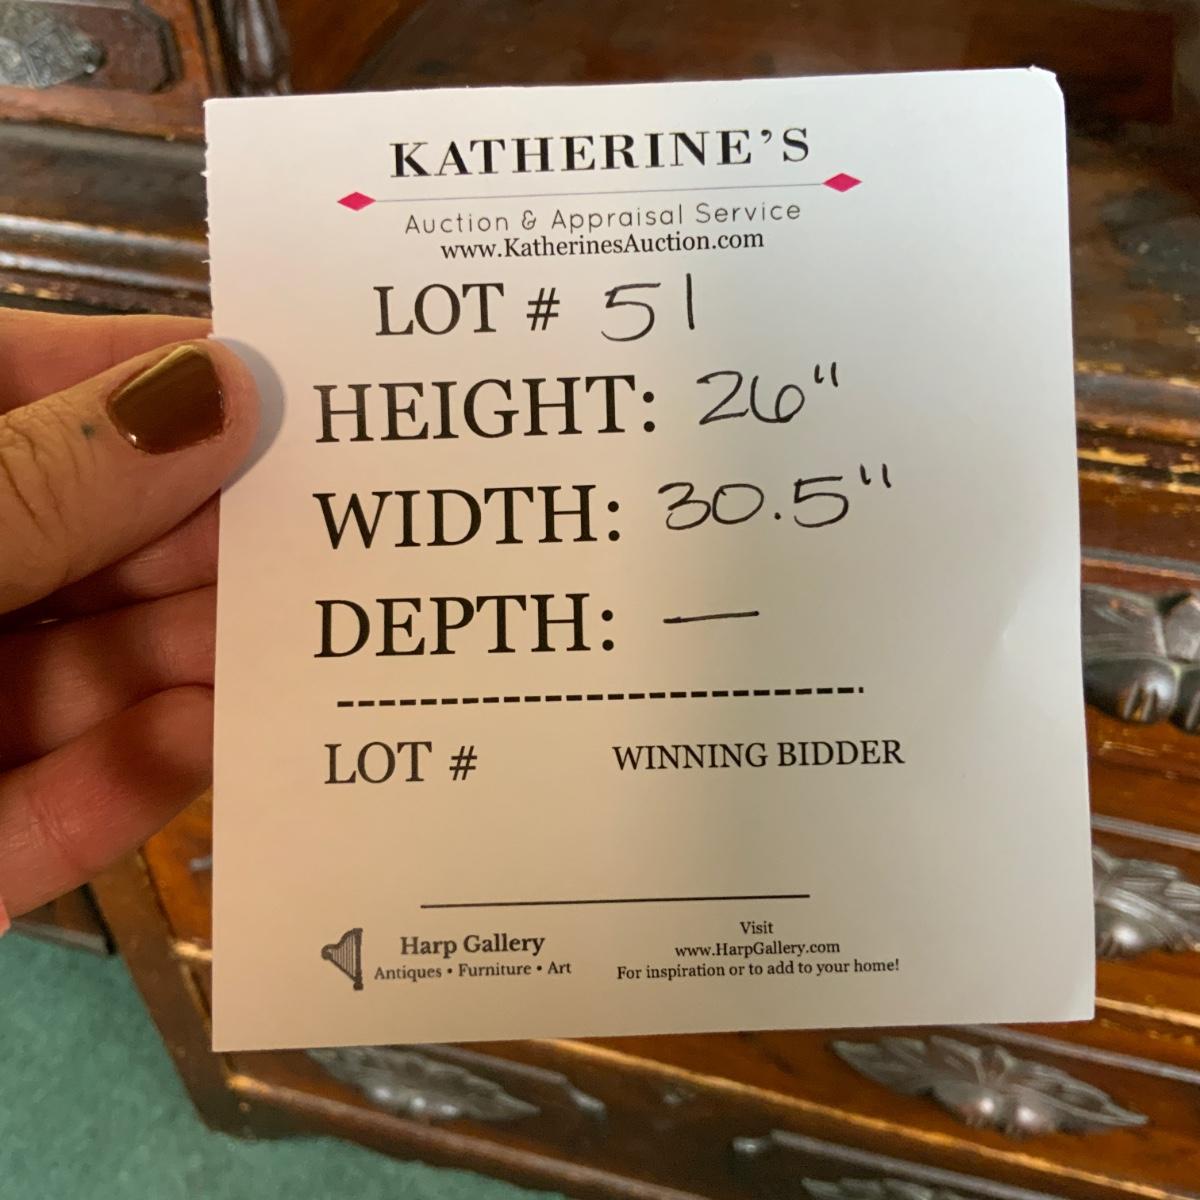 KATHERINE'S
Auction & Appraisal Service
www.KatherinesAuction.com
LOT # 51
HEIGHT: 26"
WIDTH: 30.5"
DEPTH: —
LOT # WINNING BIDDER
Harp Gallery
Antiques • Furniture • Art
Visit
www.HarpGallery.com
For inspiration or to add to your home!